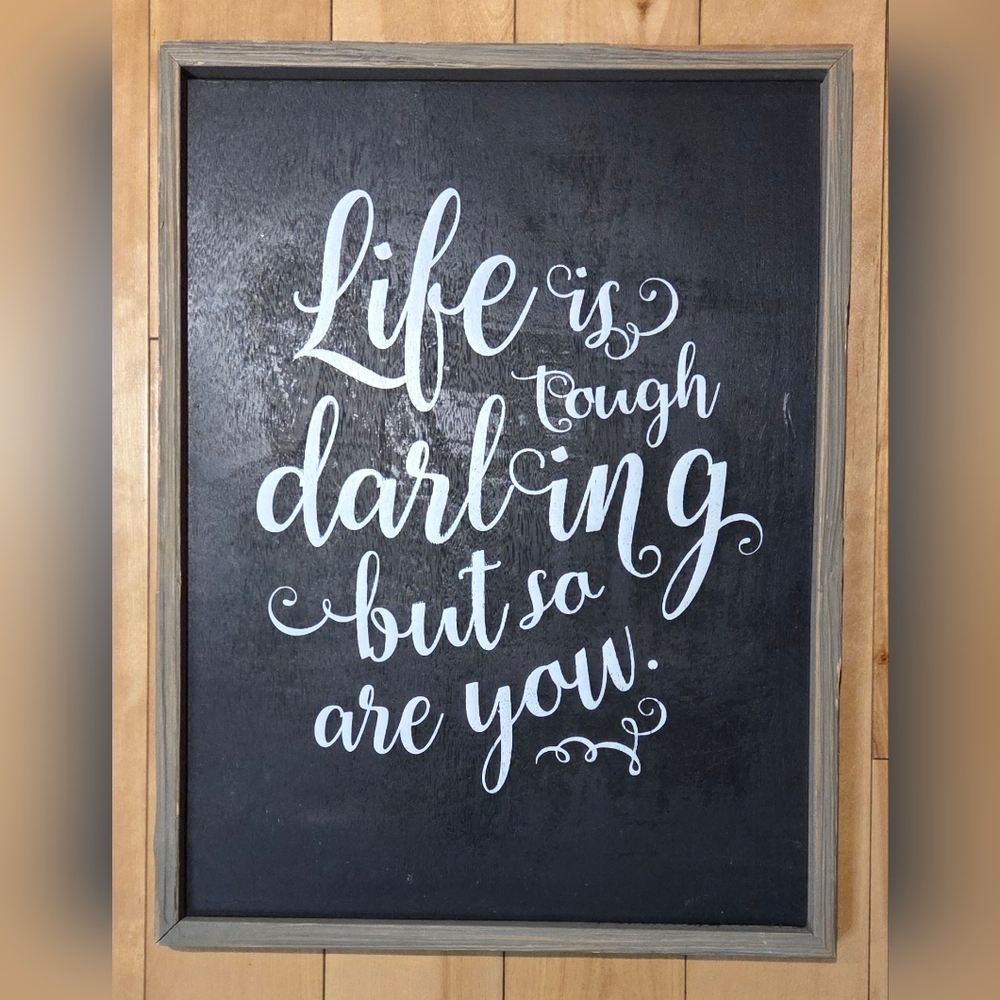 Life is
tough
darling
but so
are you.